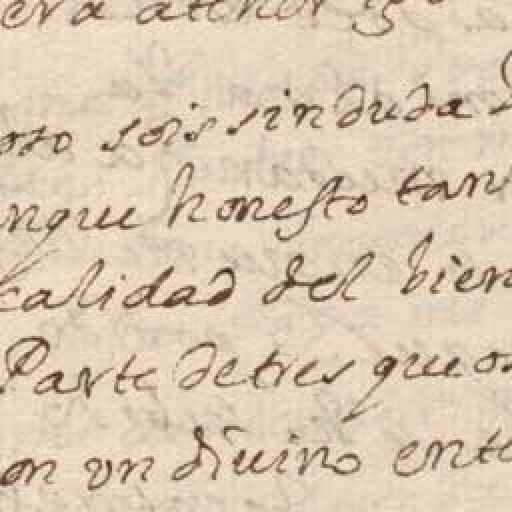 era
oso sois sin duda
nque honesto tan
calidad del bien
Parte de tres que os
on vn diuino ente